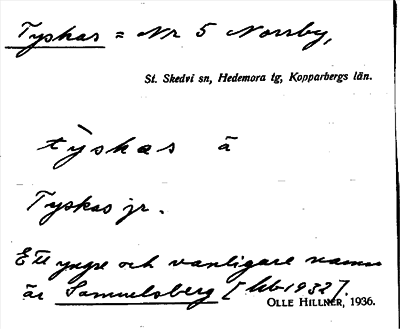 Tyskas = Nr 5 Norrby,
St. Skedvi sn, Hedemora tg, Kopparbergs län.
tỳskas ä
Tyskas jr.
Ett yngre och vanligare namn
är Samuelsberg [kb 1932].
OLLE HILLNER, 1936.